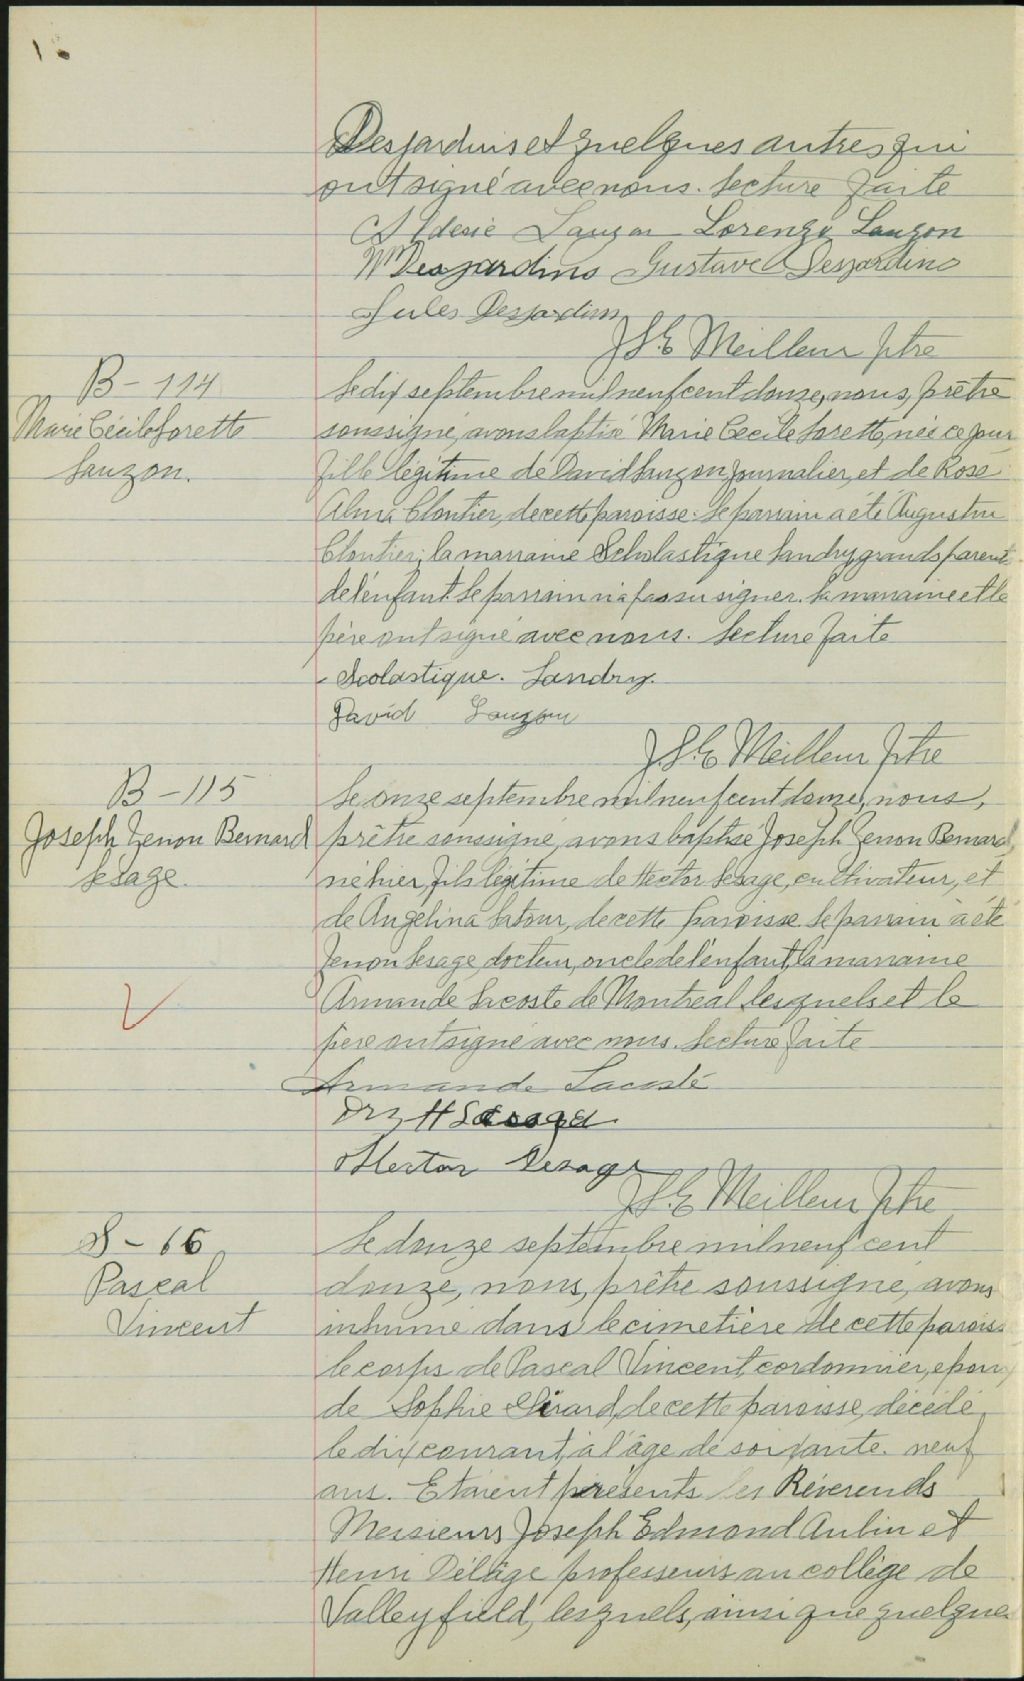 Desjardins et quelques autres qui
ont signé avec nous. Lecture faite
Aldéric Lauzon Lorenzo Lauzon
Wm Desjardins Gustave Desjardins
Jules Desjardins
J.S.E Meilleur ptre
B - 114
Marie Cécile Lorette
Lauzon.
Le dix septembre mil neuf cent douze, nous, prêtre
soussigné, avons baptisé Marie Cécile Lorette, née ce jour
fille légitime de David Lauzon, journalier, et de Rose
Alma Cloutier, de cette paroisse. Le parrain a été Augustin
Cloutier; la marraine Scholastique Landry, grands parents
de l'enfant. Le parrain n'a pas su signer. La marraine et le
père ont signé avec nous. Lecture faite
Scolastique. Landry.
David Lauzon
J.S.E Meilleur ptre
B - 115
Joseph Zenon Bernard
Lesage.
Le onze septembre mil neuf cent douze, nous,
prêtre soussigné, avons baptisé Joseph Zenon Bernard,
né hier, fils légitime de Hector Lesage, cultivateur, et
de Angelina Latour, de cette paroisse. Le parrain a été
Zenon Lesage, docteur, oncle de l'enfant, la marraine
Armande Lacoste de Montreal lesquels et le
père ont signé avec nous. Lecture faite
Armande Lacoste
Lesage
Hector Lesage
J.S.E Meilleur ptre
S - 66
Pascal
Vincent
Le douze septembre mil neuf cent
douze, nous, prêtre soussigné, avons
inhumé dans le cimetière de cette paroisse
le corps de Pascal Vincent, cordonnier, époux
de Sophie Girard, de cette paroisse, décédé,
le dix courant, à l'âge de soixante. neuf
ans. Etaient présents les Réverends
Messieurs Joseph Edmond Aubin et
Henri Délâge professeurs au collège de
Valleyfield, lesquels, ainsi que quelques